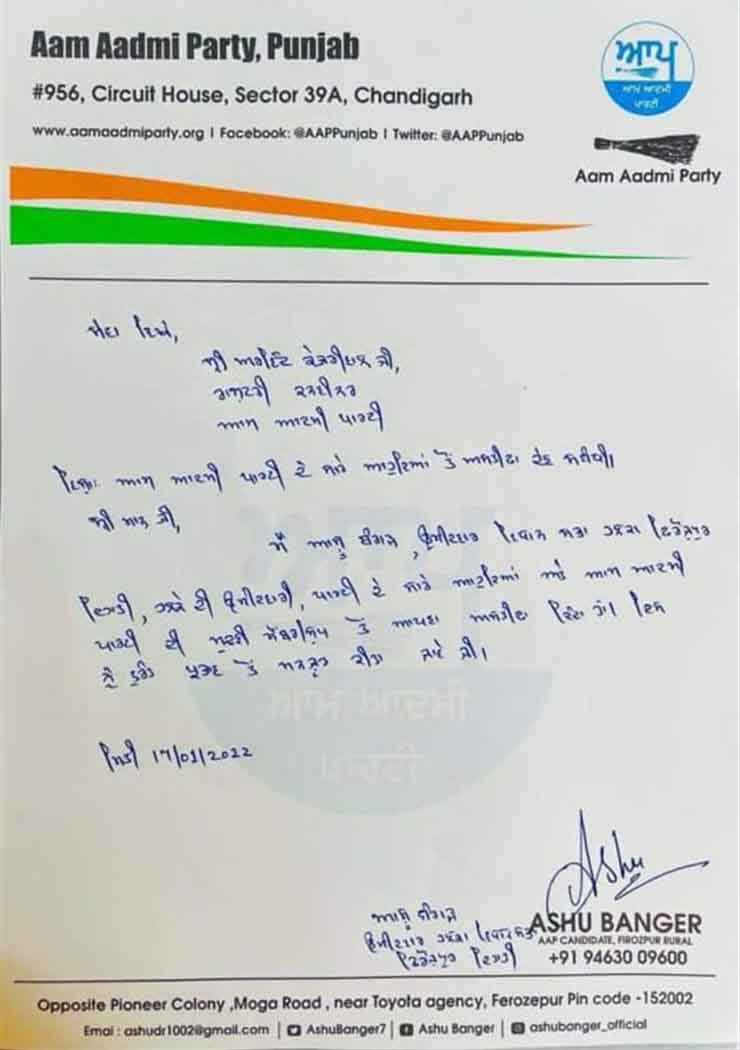 Aam Aadmi Party, Punjab
#956, Circuit House, Sector 39A, Chandigarh
www.aamaadmiparty.org | Facebook: @AAPPunjab | Twitter: @AAPPunjab
ਆਪ
ਆਮ ਆਦਮੀ
ਪਾਰਟੀ
Aam Aadmi Party
ਸੇਵਾ ਵਿਖੇ,
ਸ਼੍ਰੀ ਅਰਵਿੰਦ ਕੇਜਰੀਵਾਲ ਜੀ,
ਰਾਸ਼ਟਰੀ ਕਨਵੀਨਰ
ਆਮ ਆਦਮੀ ਪਾਰਟੀ
ਵਿਸ਼ਾ: ਆਮ ਆਦਮੀ ਪਾਰਟੀ ਦੇ ਸਾਰੇ ਅਹੁਦਿਆਂ ਤੋਂ ਅਸਤੀਫਾ ਦੇਣ ਸਬੰਧੀ।
ਸ਼੍ਰੀ ਮਾਨ ਜੀ,
ਮੈਂ ਆਸ਼ੂ ਬੰਗੜ, ਉਮੀਦਵਾਰ ਵਿਧਾਨ ਸਭਾ ਹਲਕਾ ਫਿਰੋਜ਼ਪੁਰ
ਦਿਹਾਤੀ, ਹਲਕੇ ਦੀ ਉਮੀਦਵਾਰੀ, ਪਾਰਟੀ ਦੇ ਸਾਰੇ ਅਹੁਦਿਆਂ ਅਤੇ ਆਮ ਆਦਮੀ
ਪਾਰਟੀ ਦੀ ਮੁਢਲੀ ਮੈਂਬਰਸ਼ਿਪ ਤੋਂ ਆਪਣਾ ਅਸਤੀਫਾ ਦਿੰਦਾ ਹਾਂ। ਇਸ
ਨੂੰ ਤੁਰੰਤ ਪ੍ਰਭਾਵ ਤੋਂ ਮਨਜ਼ੂਰ ਕੀਤਾ ਜਾਵੇ ਜੀ।
ਆਪ
ਆਮ ਆਦਮੀ
ਪਾਰਟੀ
ਮਿਤੀ 17/01/2022
Ashu
ਆਸ਼ੂ ਬੰਗੜ
ਉਮੀਦਵਾਰ ਹਲਕਾ ਵਿਧਾਨ ਸਭਾ
ਫਿਰੋਜ਼ਪੁਰ ਦਿਹਾਤੀ
ASHU BANGER
AAP CANDIDATE, FIROZPUR RURAL
+91 94630 09600
Opposite Pioneer Colony ,Moga Road , near Toyota agency, Ferozepur Pin code -152002
Emai : ashudr1002@gmail.com | AshuBanger7 | Ashu Banger | ashubanger_official